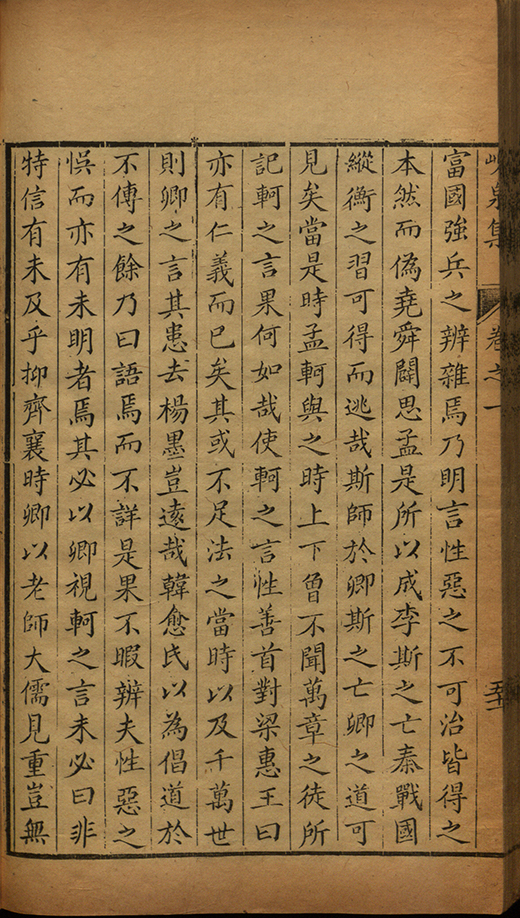 泉集 卷之一
富國強兵之辨雜焉乃明言性惡之不可治皆得之
本然而偽堯舜闢思孟是所以成李斯之亡秦戰國
縱衡之習可得而逃哉斯師於卿斯之亡卿之道可
見矣當是時孟軻與之時上下曾不聞萬章之徒所
記軻之言果何如哉使軻之言性善首對梁惠王曰
亦有仁義而已矣其或不足法之當時以及千萬世
則卿之言其患去楊墨豈遠哉韓愈氏以為倡道於
不傳之餘乃曰語焉而不詳是果不暇辨夫性惡之
悞而亦有未明者焉其必以卿視軻之言未必曰非
特信有未及乎抑齊襄時卿以老師大儒見重豈無